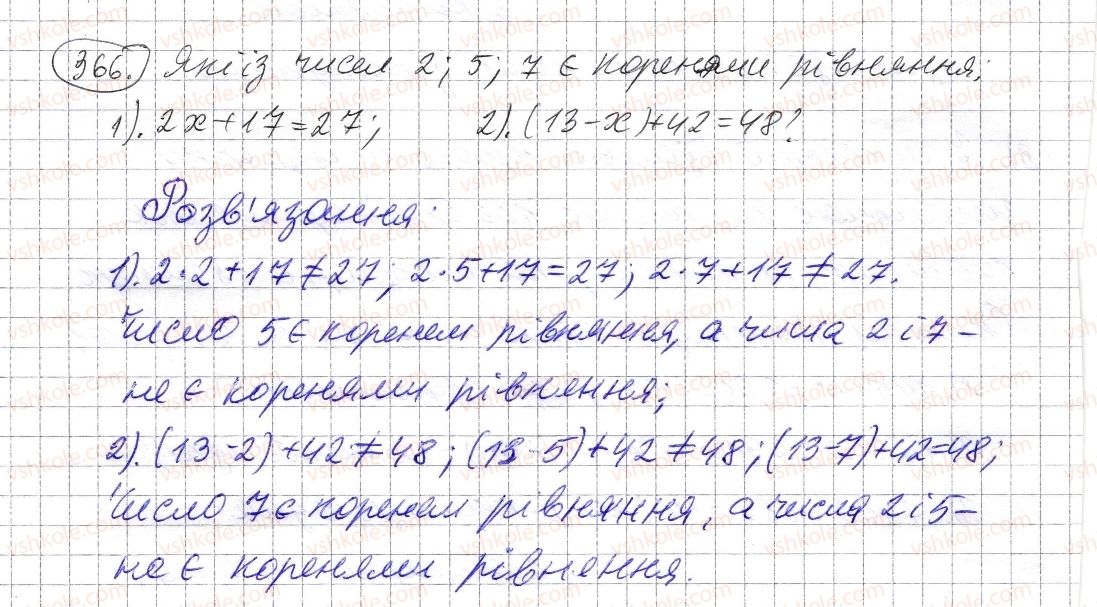 366. Які із чисел 2; 5; 7 є коренями рівняння:
1). 2x+17=27; 2). (13-x)+42=48?
Розв'язання.
1). 2·2+17≠27; 2·5+17=27; 2·7+17≠27.
Число 5 є коренем рівняння, а числа 2 і 7 -
не є коренями рівняння;
2). (13-2)+42≠48; (13-5)+42≠48; (13-7)+42=48;
Число 7 є коренем рівняння, а числа 2 і 5 -
не є коренями рівняння.